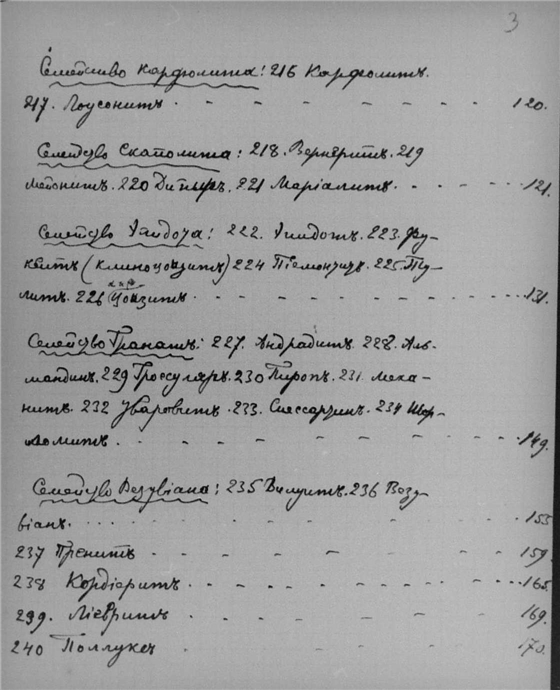 3
Семейство Карфолита: 216 Карфолитъ.
217. Лоусонитъ - - - - - - - 120.
Семейство Скаполита: 218. Вернеритъ. 219
Мейонитъ. 220 Дипиръ. 221 Маріалитъ - - - - 121.
Семейство Эпидота: 222. Эпидотъ. 223. Фу-
кеитъ (Клиноцоизитъ) 224 Піемонтитъ. 225. Пу-
литъ. 226 Цоизитъ - - - - - - - 131.
Семейство Гранатъ: 227. Андрадитъ. 228. Аль-
мандинъ. 229 Гроссуляръ. 230 Пиропъ. 231. Мела-
нитъ. 232 Уваровитъ. 233. Спессартинъ. 234 Шор-
ломитъ - - - - - - - 149.
Семейство Везувіана: 235 Вилуитъ. 236 Везу-
віанъ - - - - - - - 155
237 Пренитъ - - - - - - - 159.
238 Кордіеритъ - - - - - - - 165.
239. Ліевритъ - - - - - - - 169.
240 Поллуксъ - - - - 170.